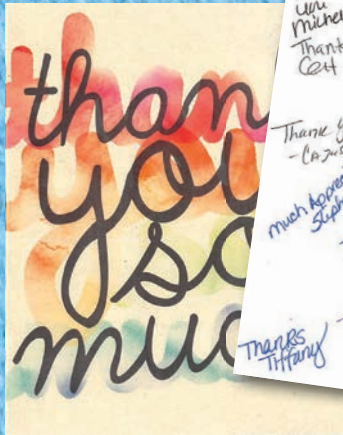 than
you
so
muc
you
Thank
Thank y
much Apprec
Steph
Thanks
Tiffany